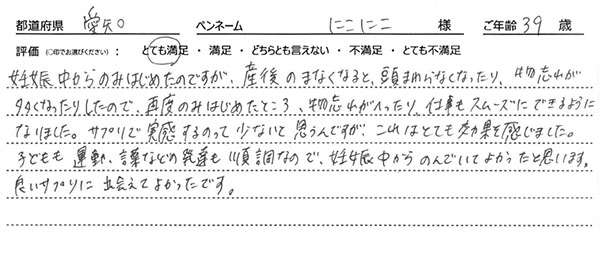 都道府県 愛知 ペンネーム にこにこ 様 ご年齢 39 歳
評価 (○印でお選びください) : とても満足 ・ 満足 ・ どちらとも言えない ・ 不満足 ・ とても不満足
妊娠中からのみはじめたのですが、産後のまなくなると、頭まわらなくなったり、物忘れが
多くなったりしたので、再度のみはじめたところ、物忘れがへったり、仕事もスムーズにできるように
なりました。サプリで実感するのって少ないと思うんですが、これはとても効果を感じました。
子どもも運動、言葉などの発達も順調なので、妊娠中からのんでいてよかったと思います。
良いサプリに出会えてよかったです。